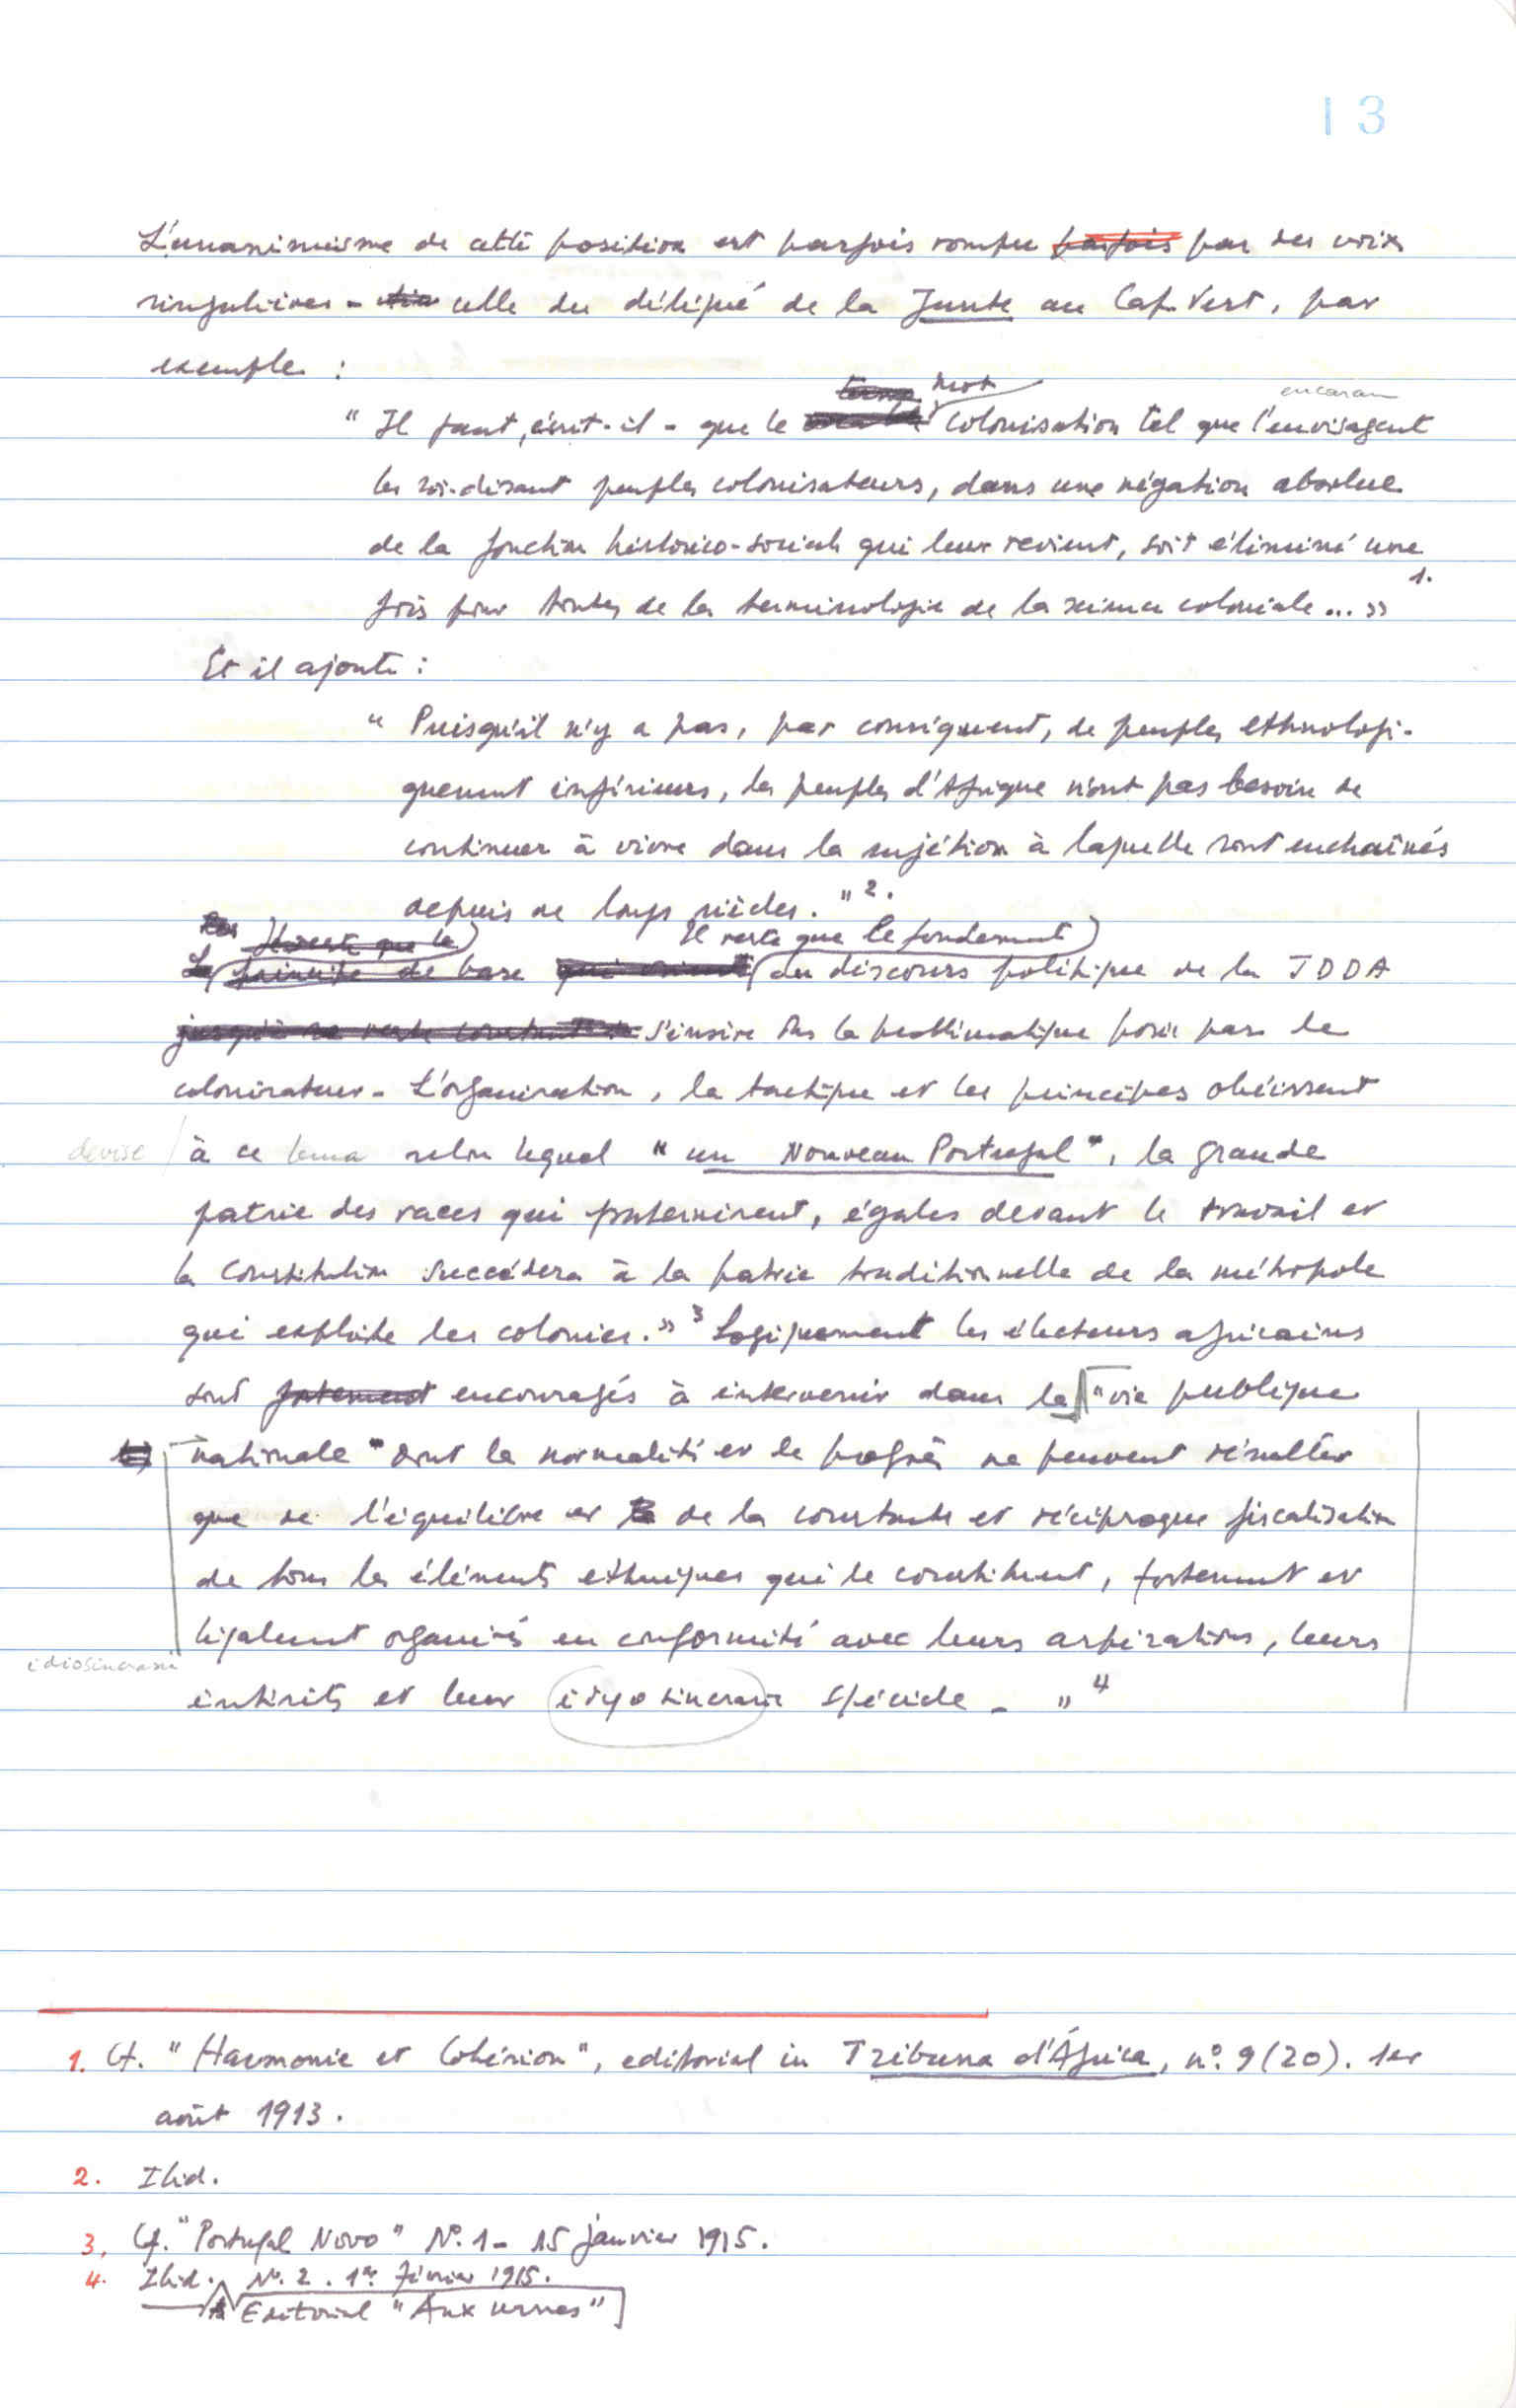 13
L'unanimisme de cette position est parfois rompu parfois par des voix
singulières - celle du délégué de la Junte au Cap-Vert, par
exemple :
mot
encaram
" Il faut, écrit-il - que le colonisation tel que l'envisagent
les soi-disant peuples colonisateurs, dans une négation absolue
de la fonction historico-sociale qui leur revient, soit éliminé une
fois pour toutes de la terminologie de la science coloniale... » 1.
Et il ajoute :
" Puisqu'il n'y a pas, par conséquent, de peuples ethnologi-
quement inférieurs, les peuples d'Afrique n'ont pas besoin de
continuer à vivre dans la sujétion à laquelle sont enchaînés
depuis de longs siècles. " 2.
Il reste que le Il reste que le fondement
Le principe de base du discours politique de la JDDA
s'insère ds la problématique posée par le
colonisateur - L'organisation, la tactique et les principes obéissent
devise / à ce lema selon lequel " un Nouveau Portugal ", la grande
patrie des races qui fraternisent, égales devant le travail et
la Constitution succédera à la patrie traditionnelle de la métropole
qui exploite les colonies. » 3 Logiquement les électeurs africains
sont fortement encouragés à intervenir dans la " vie publique
nationale " dont la normalité et le progrès ne peuvent résulter
que de l'équilibre et de la constante et réciproque fiscalisation
de tous les éléments ethniques qui le constituent, fortement et
légalement organisés en conformité avec leurs aspirations, leurs
idiosincrasie
intérêts et leur idyosincrasie spéciale - " 4
1. Cf. " Harmonie et Cohésion ", editorial in Tribuna d'África, nº. 9 (20). 1er
août 1913.
2. Ibid.
3. Cf. " Portugal Novo " Nº. 1 - 15 janvier 1915.
4. Ibid. Nº. 2. 1er Février 1915.
Editorial " Aux urnes "]